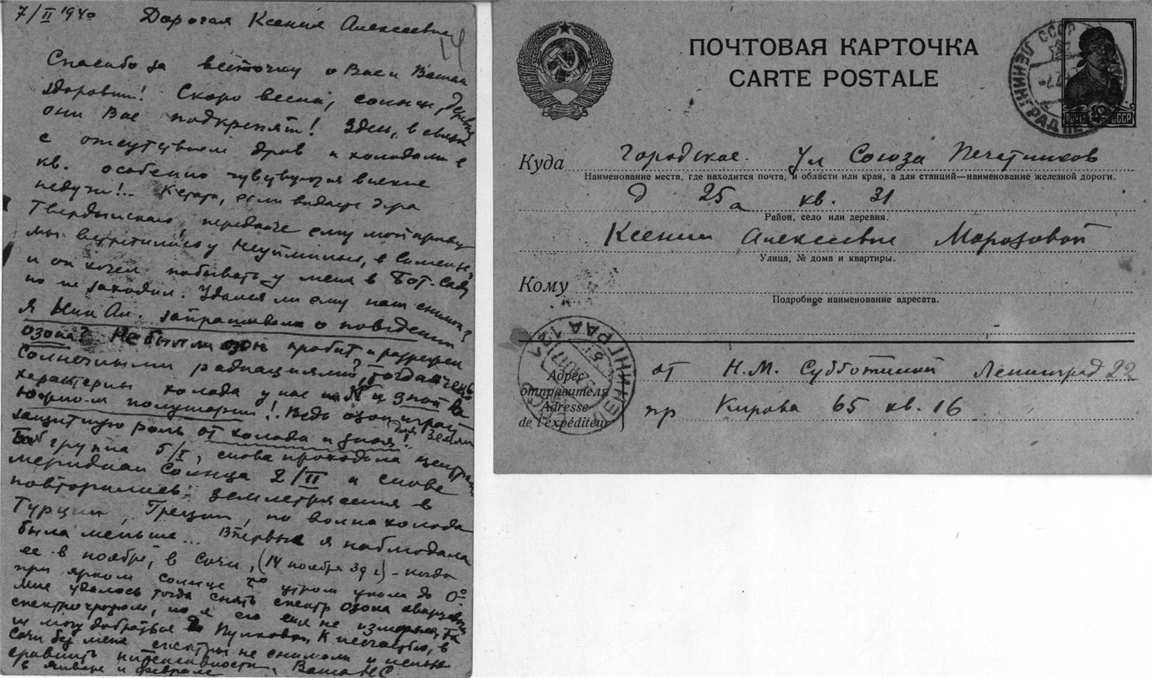 7/II 1940 Дорогая Ксения Алексеевна
14
Спасибо за весточку о Вас и Вашем
здоровии! Скоро весна, солнце, деревня
они Вас подкрепят! Здесь, в связи
с отсутствием дров и холодами в
кв. особенно чувствуются всякие
недуги!.. Кстати, если видаете д-ра
Твердынского, передайте ему мой привет
мы встретились у Неуйминых, в Симеизе,
и он хотел побывать у меня в Бот. саду
но не заходил. Удался ли ему наш снимок?
Я Ник Ал. запрашивала о поведении
озона? Не был ли озон пробит, и разрежен
солнечными радиациями, тогда
характерны холода у нас на N и зной в
южном полушарии! Ведь озон играет
защитную роль от холода и зноя для Земли
группа 5/I, снова проходила центр.
меридиан Солнца 2/II и снова
повторились землетрясения в
Турции, Греции, но волна холода
была меньше... Впервые я наблюдала
ее в ноябре, в Сочи, (14 ноября 39 г.) - когда
при ярком солнце t° утром упала до 0°.
Мне удалось тогда снять спектр озона кварцевым
спектрографом, но я его еще не измеряла, т.к.
не могу добраться до Пулкова. К несчастью, в
Сочи без меня спектры не снимали и нельзя
сравнить интенсивности
в январе и феврале Ваша НС
ПОЧТОВАЯ КАРТОЧКА
CARTE POSTALE
СССР
ЛЕНИНГРАД
ПОЧТА СССР
Куда Городское. ул Союза Печатников
Наименование места, где находится почта, и области или края, а для станций—наименование железной дороги.
д 25а кв. 31
Район, село или деревня.
Ксении Алексеевне Морозовой
Улица, № дома и квартиры.
Кому
Подробное наименование адресата.
ЛЕНИНГРАД 121
Адрес отправителя
Adresse de l'expéditeur
от Н.М. Субботиной Ленинград 22
пр Кирова 65 кв. 16